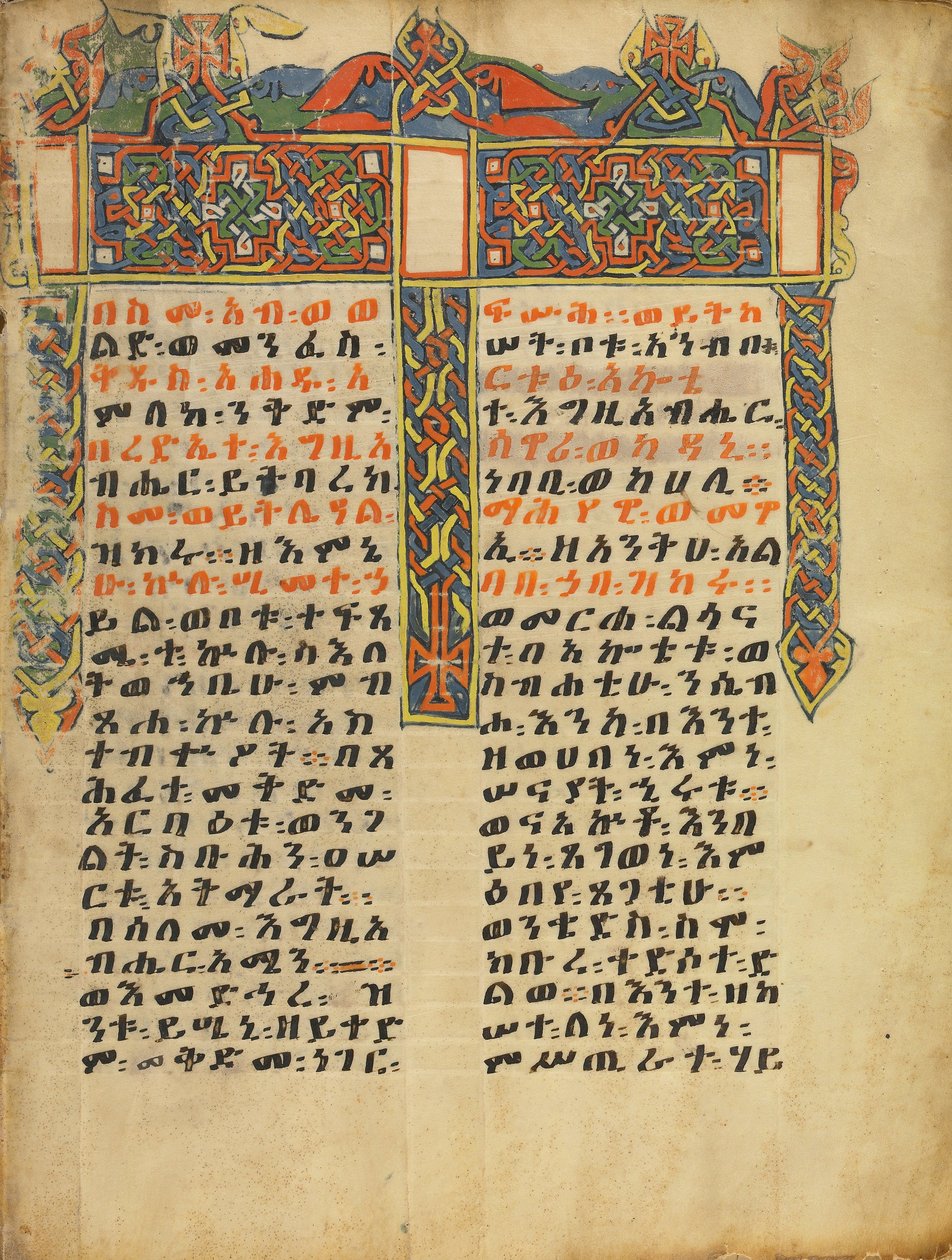 በስመ፡አብ፡ወወ
ልድ፡ወመንፈስ፡
ቅዱስ፡አሐዱ፡አ
ምላክ፡ንቅድም፡
በረድኤተ፡እግዚአ
ብሔር፡ይትባረክ
ስሙ፡ወይትሌዓል፡
ዝክሩ፡፡ዘእምኔ
ሁ፡ኵሉ፡ሢመተ፡ኃ
ይል፡ወቦቱ፡ተፍጻ
ሜ፡ተ፡ኵሉ፡ስእለ
ትወኀቤሁ፡ምብ
ጻሐ፡ኵሉ፡አስ
ተብቍዖት፡፡በጸ
ሕፈተ፡መቅድመ፡
አርባዕቱ፡ወንጌ
ልት፡ስቡሕን፡ዐሠ
ርቱ፡አትማራት፡፡
በሰላመ፡እግዚአ
ብሔር፡አሜን፡፡
ወእመድኅረ፡ዝ
ንቱ፡ይሤኒ፡ዘይቀድ
ም፡መቅድመ፡ነገር፡
ፍሡሕ፡፡ወይትከ
ሠት፡በቱ፡አንብቦ፡
ርቱዕ፡አኰቴ
ተ፡እግዚአብሔር፡
ሰዋሪ፡ወከዳኒ፡፡
ነባቢ፡ወከሃሊ፡፡
ማሕየዊ፡ወመዋ
ኢ፡፡ዘአንትሀ፡አል
ባበ፡ኃበ፡ዝክሩ፡፡
ወመርሐ፡ልሳና
ተ፡በአኰቴቱ፡ወ
ስብሐቲሁ፡ንሴብ
ሖ፡እንከ፡በእንተ፡
ዘወሀበነ፡እምነ፡
ሠናያት፡ኂሩቱ፡፡
ወናአኵቶ፡እንበ
ይነ፡ጸገወነ፡እም
ዕበየ፡ጸጋቲሁ፡፡
ወንቴድስ፡ስሞ፡
ክቡረ፡ተድሰተ፡ድ
ልወ፡፡በእንተ፡ዘከ
ሠተ፡ለነ፡እምነ፡
ምሥጢራተ፡ሃይ